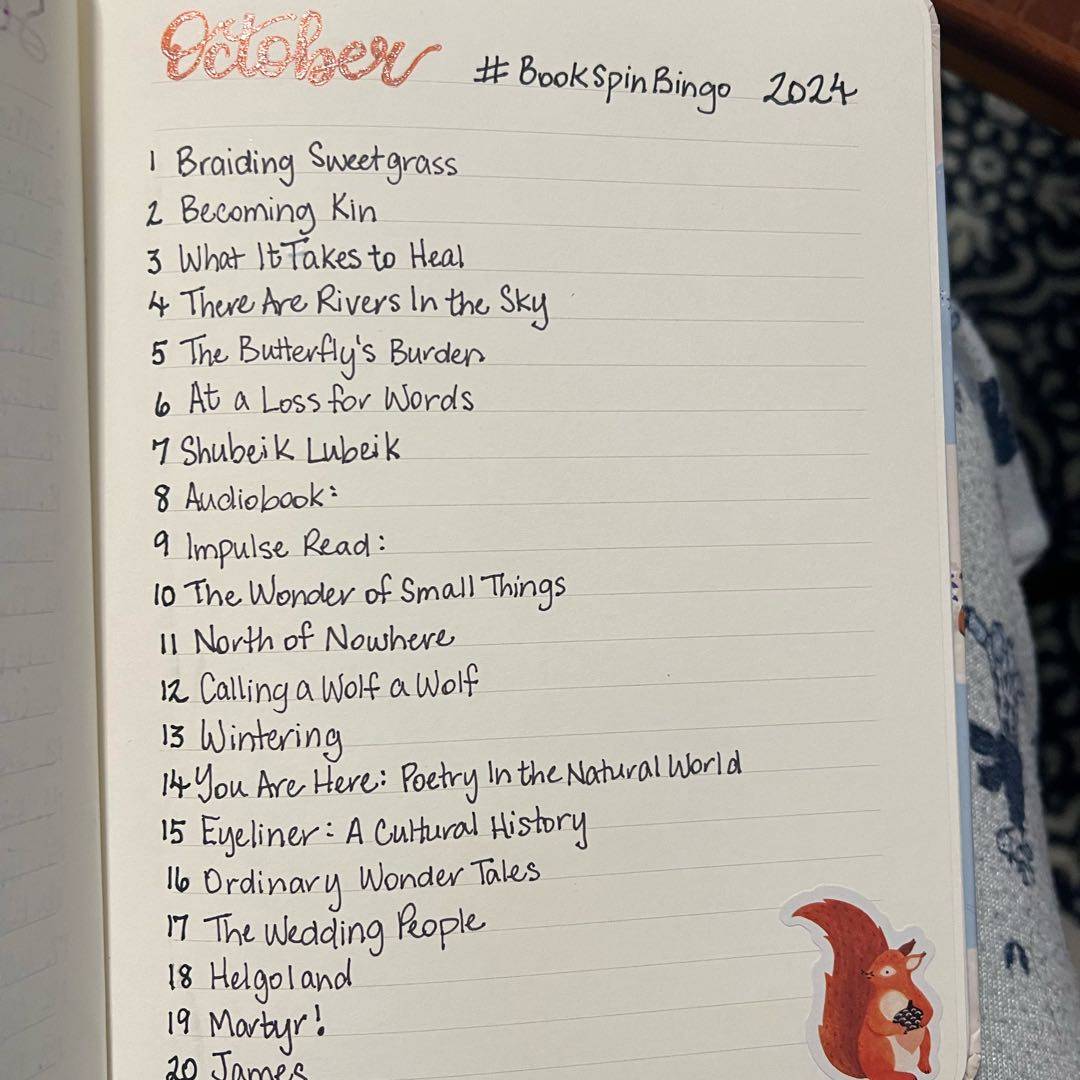 October #BookSpinBingo 2024
1 Braiding Sweetgrass
2 Becoming Kin
3 What It Takes to Heal
4 There Are Rivers In the Sky
5 The Butterfly's Burden
6 At a Loss for Words
7 Shubeik Lubeik
8 Audiobook:
9 Impulse Read:
10 The Wonder of Small Things
11 North of Nowhere
12 Calling a Wolf a Wolf
13 Wintering
14 You Are Here: Poetry In the Natural World
15 Eyeliner: A Cultural History
16 Ordinary Wonder Tales
17 The Wedding People
18 Helgoland
19 Martyr!
20 James